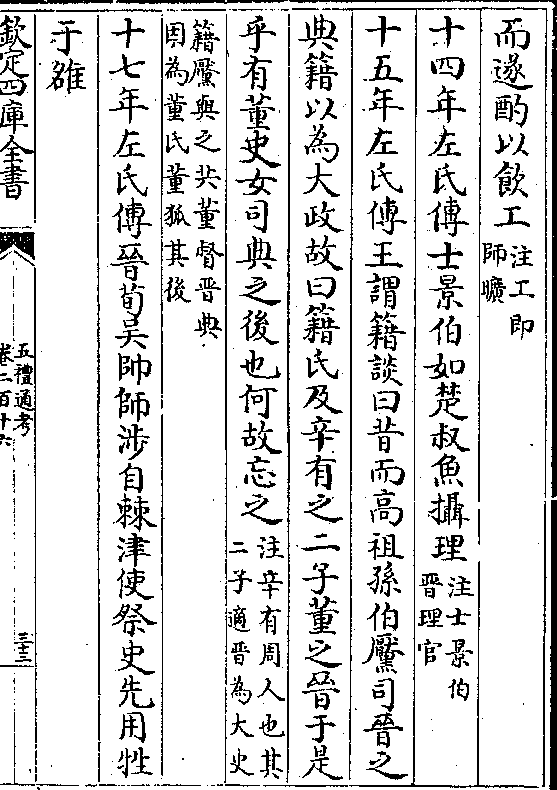 而遂酌以飲工注工即師曠
十四年左氏傳士景伯如楚叔魚攝理注士景伯晉理官
十五年左氏傳王謂籍談曰昔而高祖孫伯黶司晉之
典籍以為大政故曰籍氏及辛有之二子董之晉于是
乎有董史女司典之後也何故忘之注辛有周人也其二子適晉為大史
籍黶與之共董督晉典因為董氏董狐其後
十七年左氏傳晉荀吳帥師涉自棘津使祭史先用牲
于雒
欽定四庫全書
五禮通考
卷二百十六
三十二